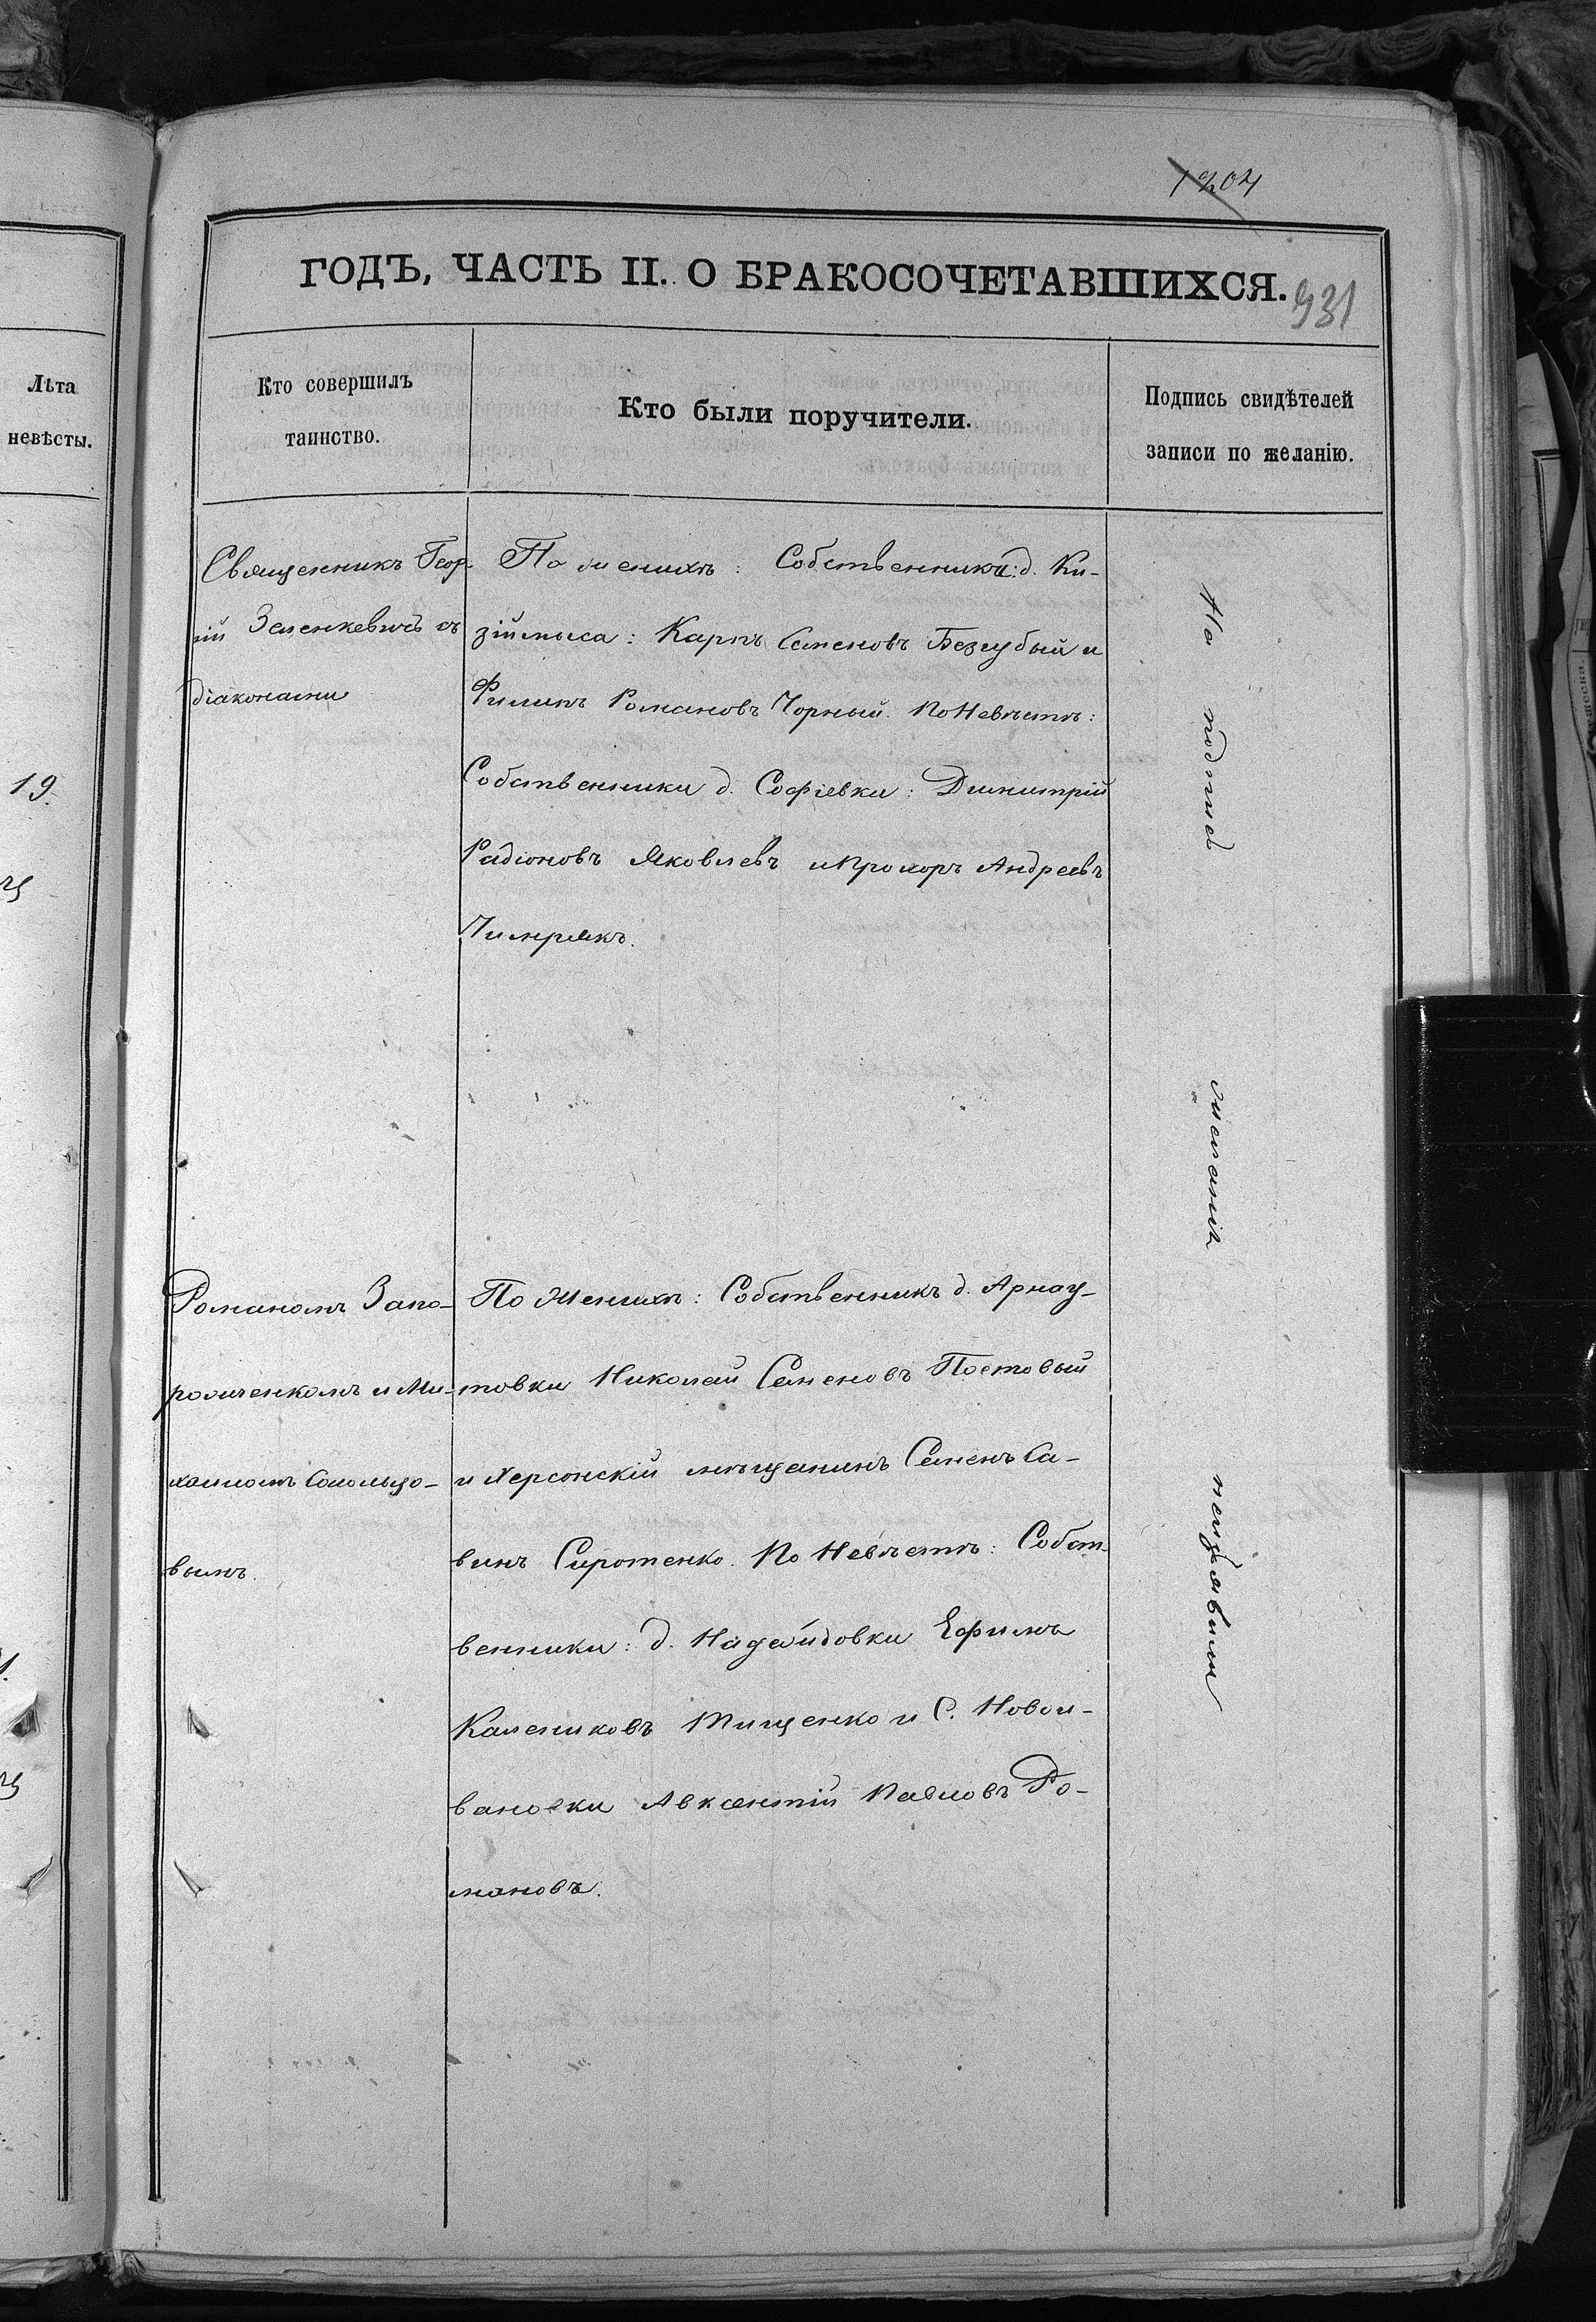 1204
ГОДЪ, ЧАСТЬ II. О БРАКОСОЧЕТАВШИХСЯ.
931
Лѣта
невѣсты.
19.
Кто совершилъ
таинство.
Кто были поручители.
Подпись свидѣтелей
записи по желанію.
Священникъ Геор-
гій Зеленкевичъ съ
діаконами
По жениху: Собственники: д. Ки-
зіймыса: Карпъ Семеновъ Беззубый и
Филипъ Романовъ Чорный. По Невѣстѣ:
Собственники д. Софіевки: Димитрій
Радіоновъ Яковлевъ и Прохоръ Андреевъ
Чимрякъ.
Романомъ Запо-
рожченкомъ и Ми-
хаиломъ
вымъ.
По Жениху: Собственникъ д. Арнау-
товки Николай Семеновъ Постовый
и Херсонскій мѣщанинъ Семенъ Са-
винъ Сиротенко. По Невѣстѣ: Собст-
венники: д. Ефимъ
Калениковъ Тищенко и С. Новои-
вановки Авксентій Павловъ Ро-
мановъ.
На подпись
желанія
неизъявили